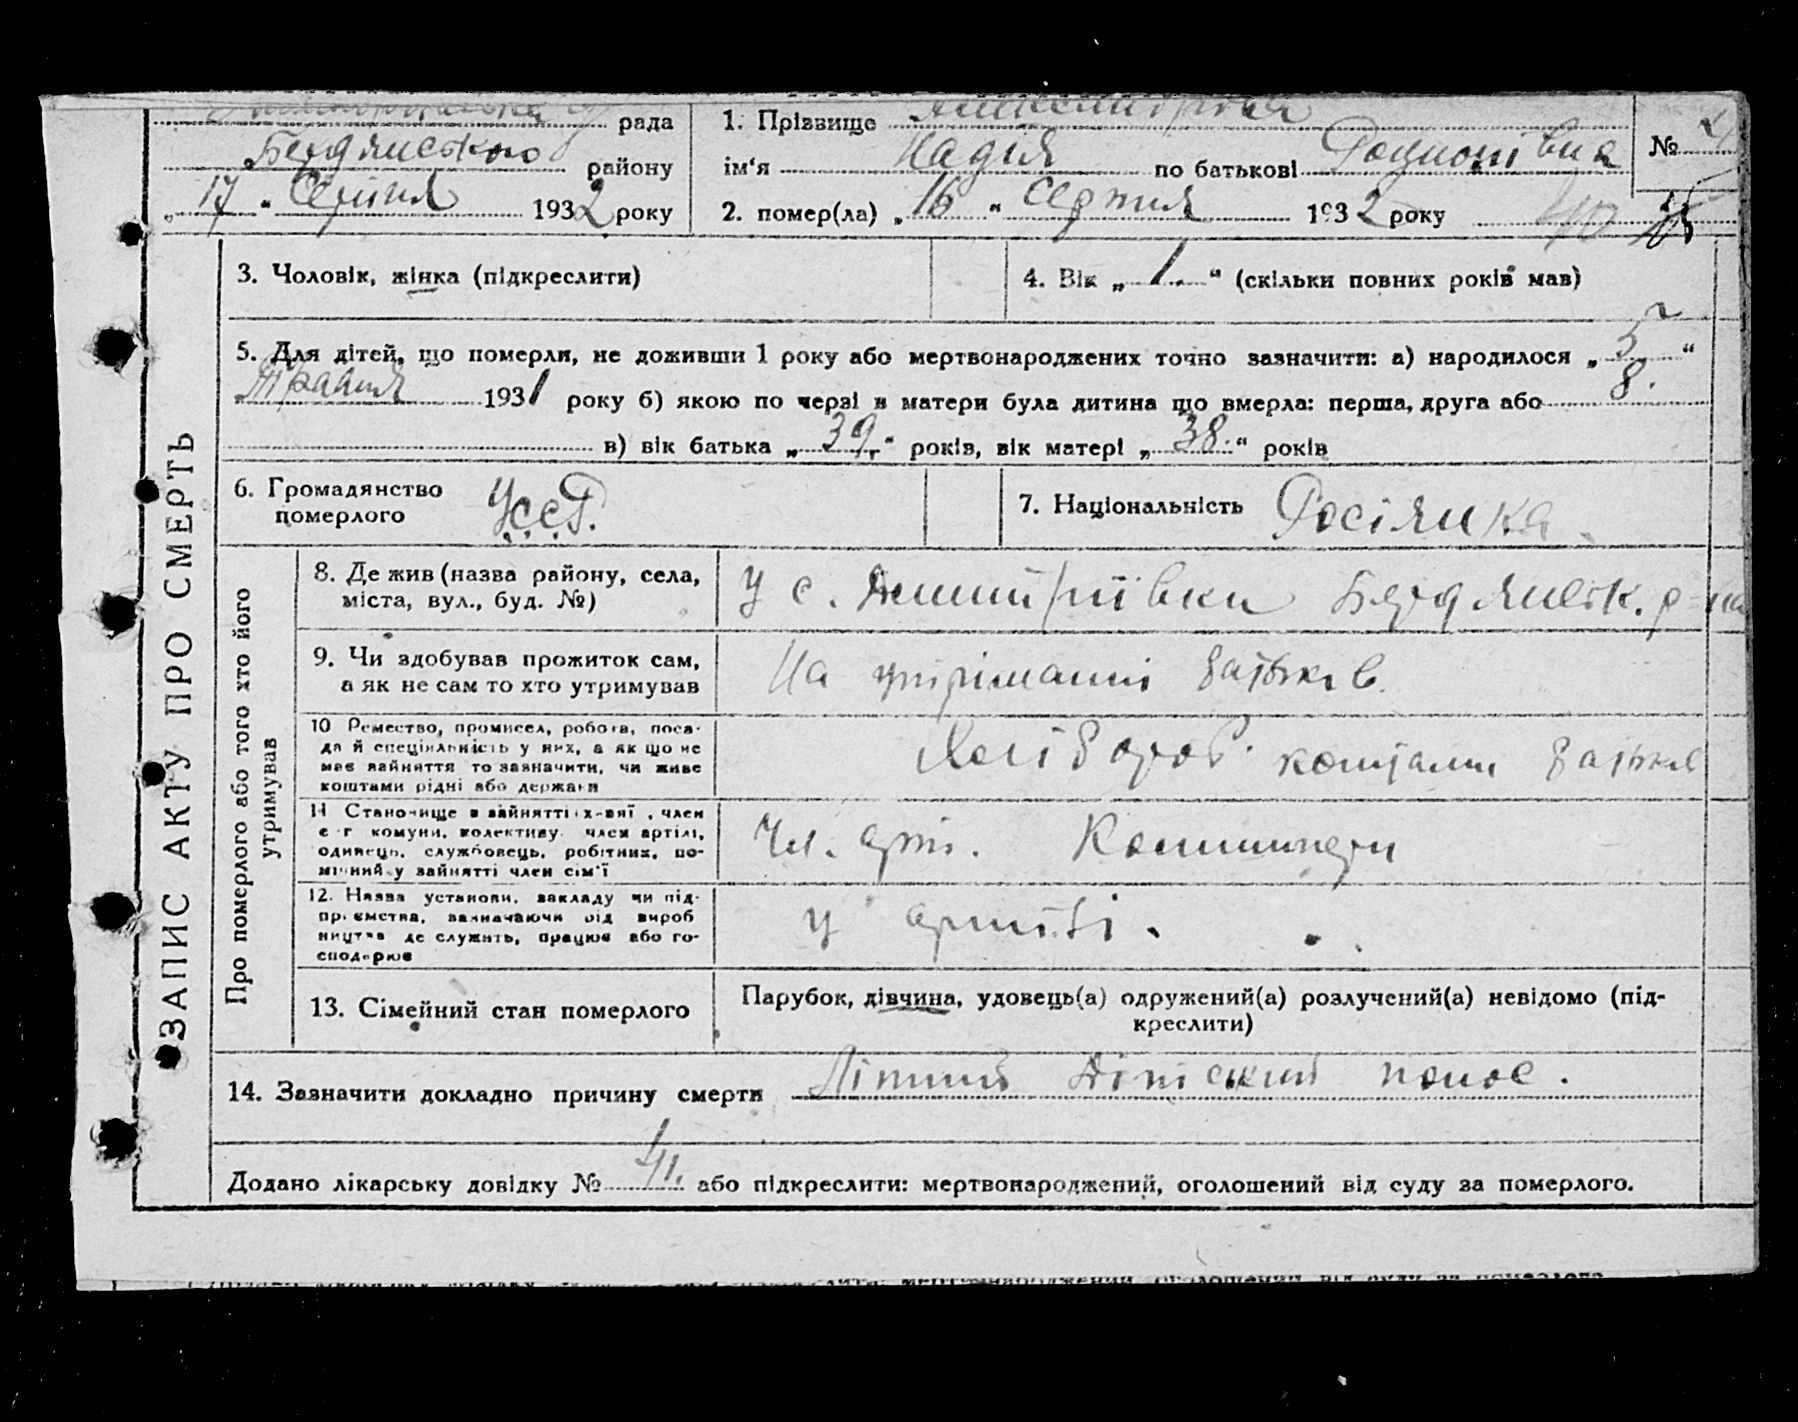 рада
1. Прізвище
№
Бердянського району
ім‘я Надія по батькові Родионівна
„ 17 “ Серпня 1932 року
2. помер(ла) „ 16 “ серпня 1932 року
3. Чоловік, жінка (підкреслити)
4. Вік „ 1. “ (скільки повних років мав)
5. Для дітей, що померли, не доживши 1 року або мертвонароджених точно зазначити: а) народилося „ 5 “
Травня 1931 року б) якою по черзі в матери була дитина що вмерла: перша, друга або 8.
в) вік батька „ 39. “ років, вік матері „ 38. “ років
6. Громадянство
померлого
УССР.
7. Національність Росіянка.
ЗАПИС АКТУ ПРО СМЕРТЬ
Про померлого або того хто його
утримував
8. Де жив (назва району, села,
міста, вул., буд. №)
У с. Дмитрівки Бердянськ. р-на
9. Чи здобував прожиток сам,
а як не сам то хто утримував
На утріманні батьків.
10 Ремество, промисел, робота, поса-
да й спеціяльність у них, а як що не
має зайняття то зазначити, чи живе
коштами рідні або держави
Хлібороб. коштами батьків
11 Становище в зайнятті х-вяї, член
с-г комуни, колективу член артілі,
одинець, службовець, робітник, по-
мічний у зайнятті член сім‘ї
Чл. арт.
12. Назва установи, закладу чи під-
приємства, зазначаючи від вироб
ництва де служить, працює або го-
сподарює
У артілі.
13. Сімейний стан померлого
Парубок, дівчина, удовець(а) одружений(а) розлучений(а) невідомо (під-
креслити)
14. Зазначити докладно причину смерти Літний Дітіський понос.
Додано лікарську довідку № 41. або підкреслити: мертвонароджений, оголошений від суду за померлого.